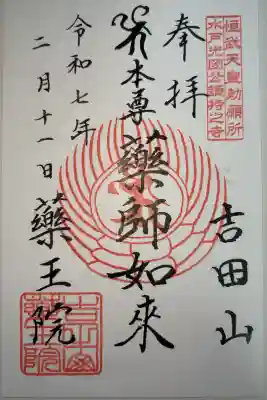 桓武天皇勅願所
水戸光圀公護持之寺
奉拝
吉田山
本尊 藥師如來
令和七年
二月十一日
藥王院